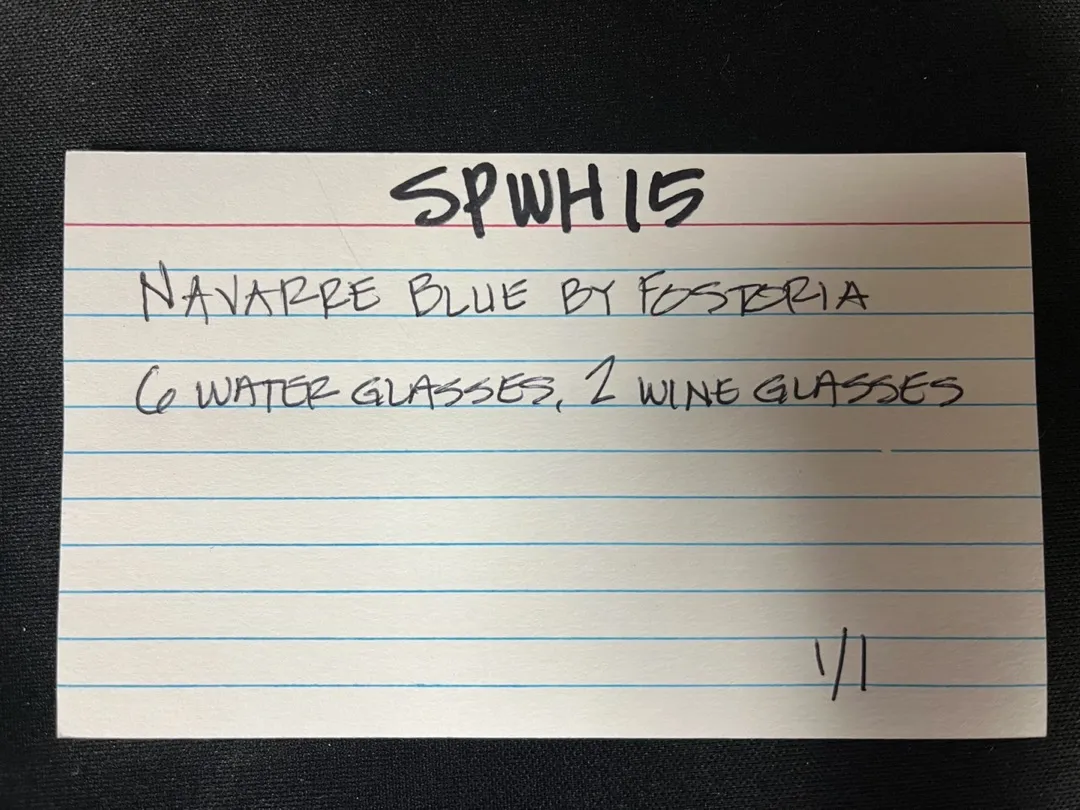 SPWH15
NAVARRE BLUE BY FOSTORIA
6 WATER GLASSES, 2 WINE GLASSES
1/1